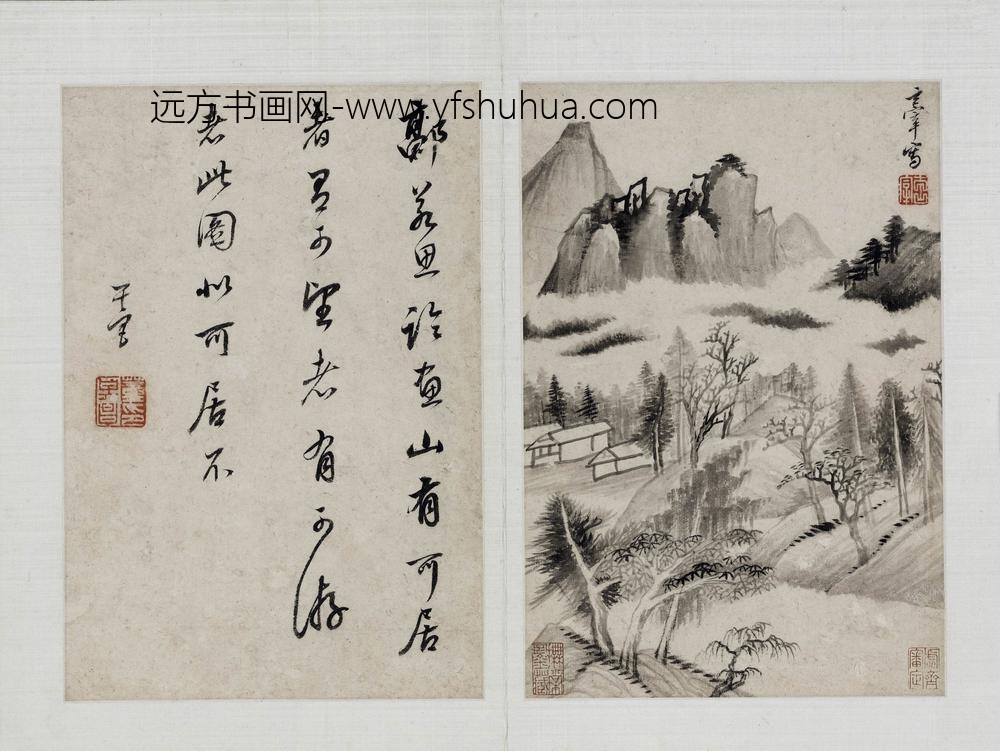 远方书画网-www.yfshuhua.com
玄宰寫
郭若思論畫山有可居
者有可望者有可游
者此圖似可居不
其昌